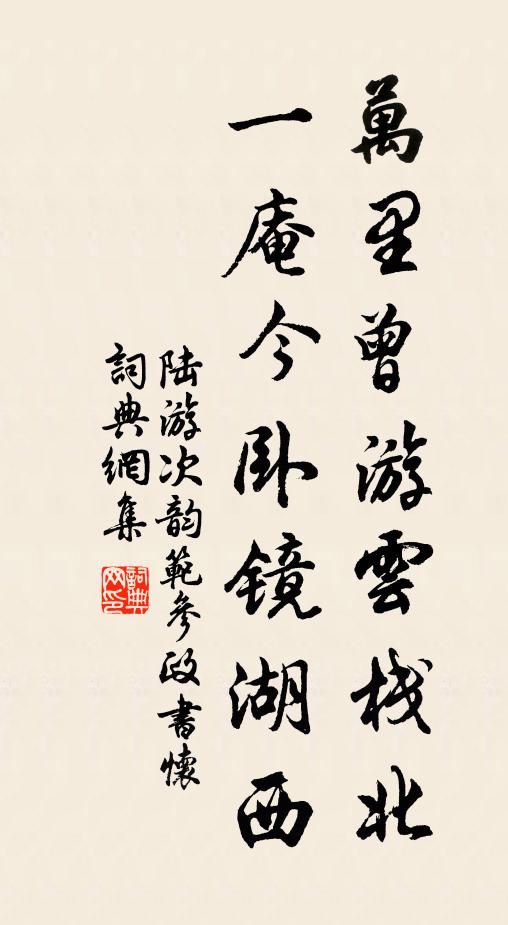 萬里曾游雲栈北
一庵今卧鏡湖西
陆游次韵範參政書懷
詞典網集
詞典网印